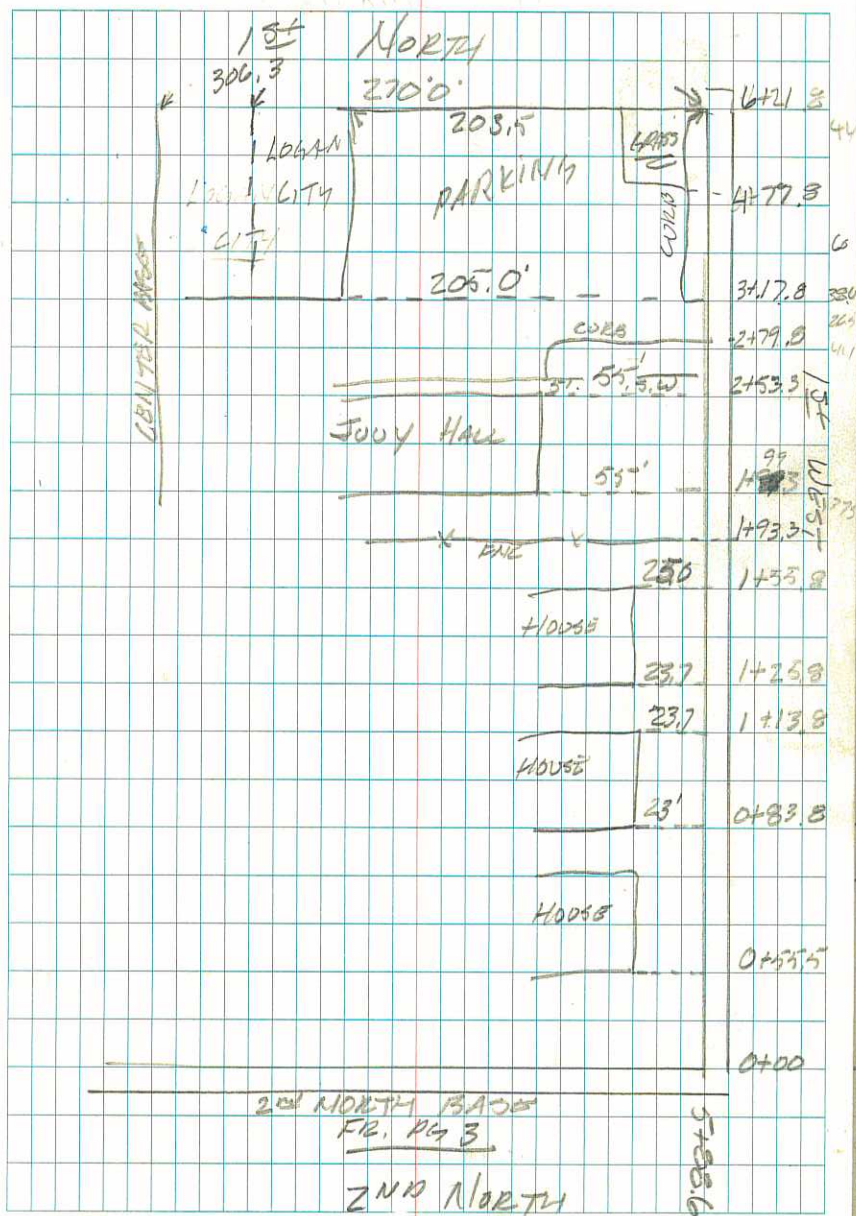 1 St NORTH
306.3
270'0"
6+21.8
203.5
LOGAN
CITY
PARKING
GRASS
CURB
4+77.8
CENTER BASE
205.0'
3+17.8
CURB
2+79.8
55'
S.W
2+53.3
JUVY HALL
1st WEST
99
55'
1+93.3
FNC
250
1+55.8
HOUSE
23.7
1+25.8
23.7
1+13.8
HOUSE
23'
0+83.8
HOUSE
0+55.5
0+00
2nd NORTH BASE
FR. PG 3
5+88.6
2ND NORTH